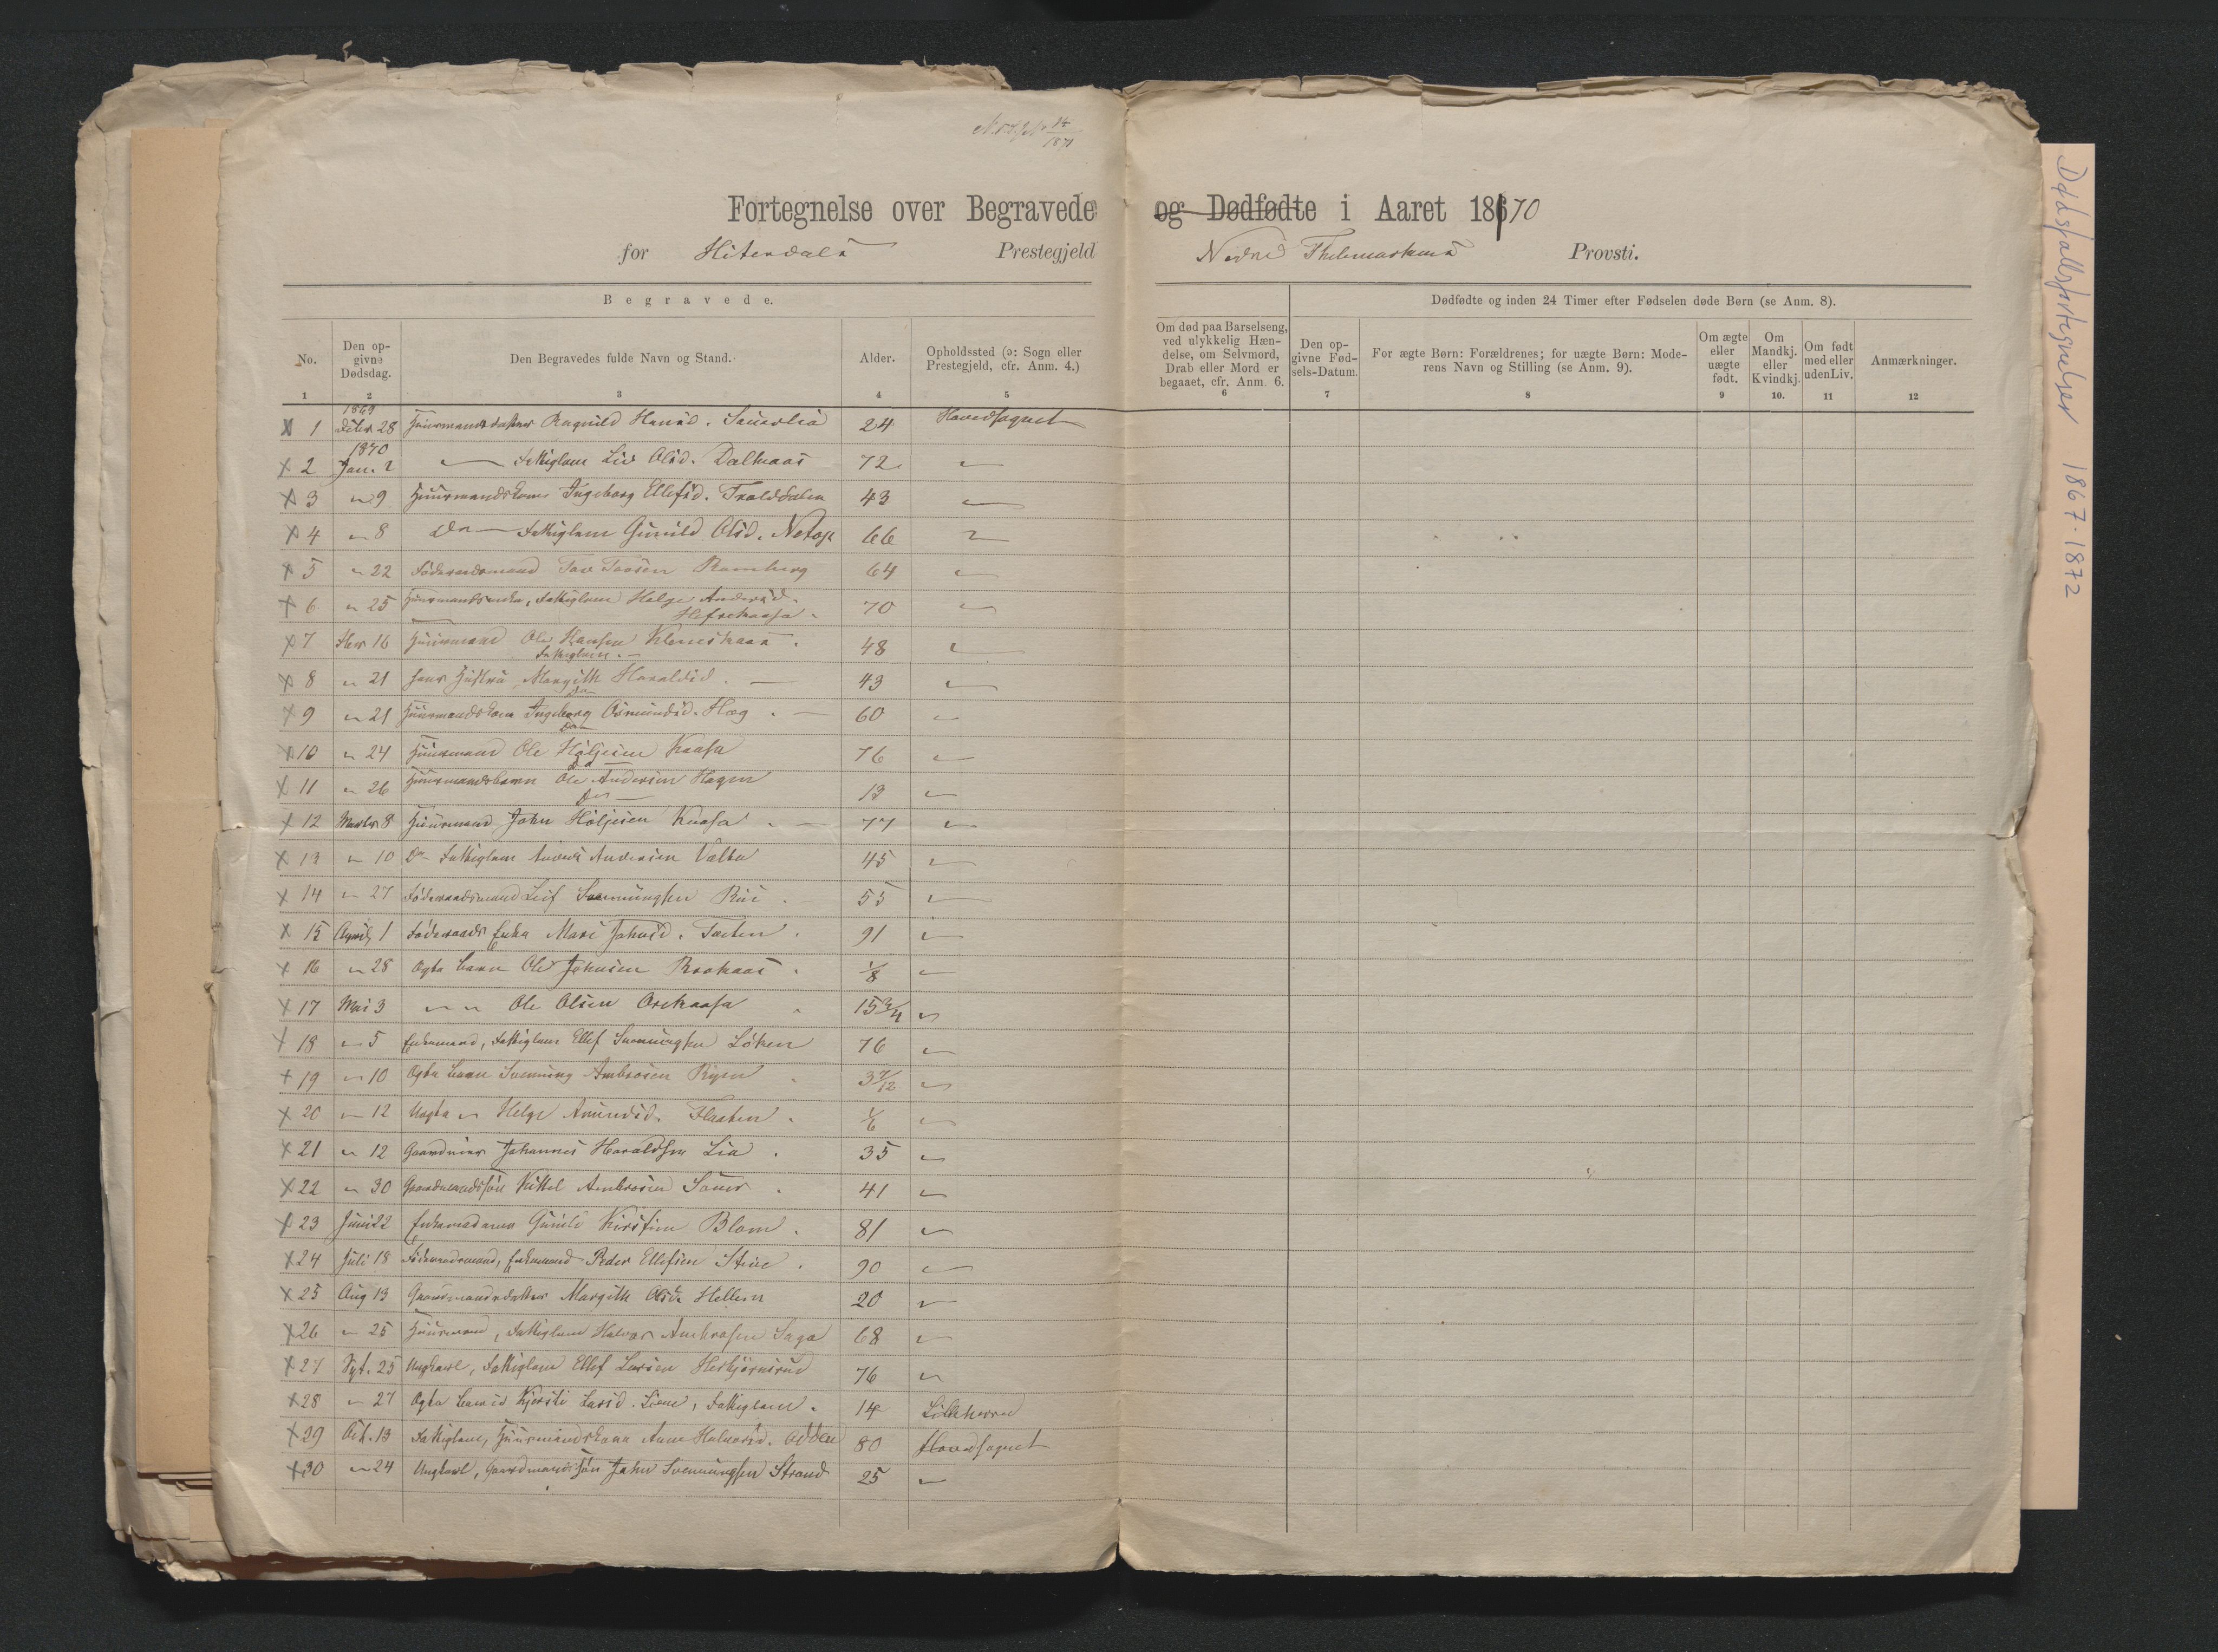 14
1871
Fortegnelse over Begravede og Dødfødte i Aaret 18670
for Hiterdals Prestegjeld Nedre Thelemarkens Provsti.
Begravede.
Dødfødte og inden 24 Timer efter Fødselen døde Børn (se Anm. 8).
No.
Den op-
givne
Dødsdag.
Den Begravedes fulde Navn og Stand.
Alder.
Opholdssted (ɔ: Sogn eller
Prestegjeld, cfr. Anm. 4.)
Om død paa Barselseng,
ved ulykkelig Hæn-
delse, om Selvmord,
Drab eller Mord er
begaaet, cfr. Anm. 6.
Den op-
givne Fød-
sels-Datum.
For ægte Børn: Forældrenes; for uægte Børn: Mode-
rens Navn og Stilling (se Anm. 9).
Om ægte
eller
uægte
født.
Om
Mandkj.
eller
Kvindkj.
Om født
med eller
uden Liv.
Anmærkninger.
1 2 3 4 5 6 7 8 9 10. 11 12
1869
x 1 Decbr 28 Huusmandsdatter Ragnild Hansd. 24 Hovedsognet
1870
x 2 Jan. 2 " Fattiglem Liv Olsd. Dalkaas 72 "
x 3 " 9 Huusmandskone Ingeborg Ellefsd. Trolddalen 43 "
x 4 " 8 Do Fattiglem Gunild Olsd. Notop 66 "
x 5 " 22 Føderaadsmand Tov Tovsen Ramberg 64 "
x 6 " 25 Huusmandsenke, Fattiglem Helge Andersd.
70 "
x 7 Fbr 16 Huusmand Ole Hansen 48 "
Fattiglem
x 8 " 21 hans Hustru Margith Haraldsd. 43 "
Do
x 9 " 21 Huusmandskone Ingeborg Osmundsd. Hæg 60 "
Do
x 10 " 24 Huusmand Ole Høljesen Kaasa 76 "
Do
x 11 " 26 Huusmandsbarn Ole Andersen Hagen 13 "
Do
x 12 Marts 8 Huusmand John Høljesen Kaasa 77 "
x 13 " 10 Do Fattiglem Anders Andersen 45 "
x 14 " 27 Føderaadsmand Leif Svenningsen Rui 55 "
x 15 April 1 Føderaads Enke Mari Johnsd. 91 "
x 16 " 28 Ægte barn Ole Johnsen 1/8 "
x 17 Mai 3 " " Ole Olsen 15 3/4 "
x 18 " 5 Enkemand, Fattiglem Ellef Svenningsen Løken 76 "
x 19 " 10 Ægte barn Svenning Ambrosen Rigen 3 7/12 "
x 20 " 12 Uægte " Helge Amundsd. Flaaten 1/6 "
x 21 " 12 Gaardeier Johannes Haraldsen Lia 35 "
x 22 " 30 Gaardmandssøn Kittel Ambrosen Sauer 41 "
x 23 Juni 22 Enkemadame Gunild Kirstine Blom 81 "
x 24 Juli 18 Føderaadsmand, Enkemand Peder Ellefsen 90 "
x 25 Aug 13 Gaardmandsdatter Margith Olsd. Hellem 20 "
x 26 " 25 Huusmand, Fattiglem Halvor Ambrosen Saga 68 "
x 27 Spt. 25 Ungkarl, Fattiglem Ellef Larsen Herbjørnsrud 76 "
x 28 " 27 Ægte barn Kjersti Larsd. Lien, Fattiglem 14 Lilleherred
x 29 Oct. 13 Fattiglem, Huusmandskone Anne Halvorsd. 80 Hovedsognet
x 30 " 24 Ungkarl, Gaardmandssøn John Svenningsen Strand 25 "
Dødsfallsfortegnelser 1867-1872